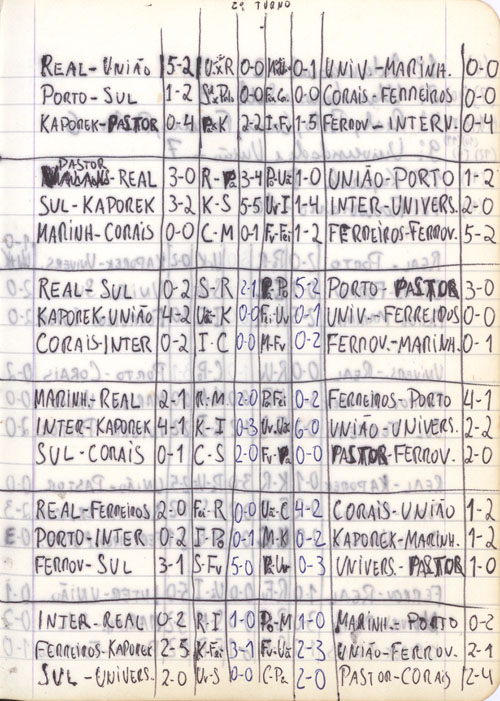 2º TURNO
REAL-UNIÃO 5-2 U.xR 0-0 0-1 UNIV.-MARINH. 0-0
PORTO-SUL 1-2 0-0 0-0 CORAIS-FERREIROS 0-0
KAPOREK-PASTOR 0-4 PxK 2-2 I-Fv 1-5 FERROV-INTERV. 0-4
PASTOR
-REAL 3-0 R-Pa 3-4 Po-Uã 1-0 UNIÃO-PORTO 1-2
SUL-KAPOREK 3-2 K-S 5-5 Uv-I 1-4 INTER-UNIVERS. 2-0
MARINH-CORAIS 0-0 C-M 0-1 Fv-Fei 1-2 FERREIROS-FERROV. 5-2
REAL-SUL 0-2 S-R 2-1 5-2 PORTO-PASTOR 3-0
KAPOREK-UNIÃO 4-2 Uã-K 0-0 Fi-Uv 0-1 UNIV-FERREIROS 0-0
CORAIS-INTER 0-2 I-C 0-0 M-Fv 0-2 FERROV.-MARINH. 0-1
MARINH.-REAL 2-1 R-M 2-0 Po.Fei 0-2 FERREIROS-PORTO 4-1
INTER-KAPOREK 4-1 K-I 0-3 Uv.Uã 6-0 UNIÃO-UNIVERS. 2-2
SUL-CORAIS 0-1 C-S 2-0 Fv-Pa 0-0 PASTOR-FERROV. 2-0
REAL-FERREIROS 2-0 Fei-R 0-0 Uã-C 4-2 CORAIS-UNIÃO 1-2
PORTO-INTER 0-2 I-Po 0-1 M-K 0-2 KAPOREK-MARINH. 1-2
FERROV-SUL 3-1 S-Fv 5-0 0-3 UNIVERS.-PASTOR 1-0
INTER-REAL 0-2 R-I 1-0 Po-M 1-0 MARINH.-PORTO 0-2
FERREIROS-KAPOREK 2-5 K-Fei 3-1 Fv-Uã 2-3 UNIÃO-FERROV. 2-1
SUL-UNIVERS. 2-0 Uv-S 0-0 C-Pa 2-0 PASTOR-CORAIS 2-4